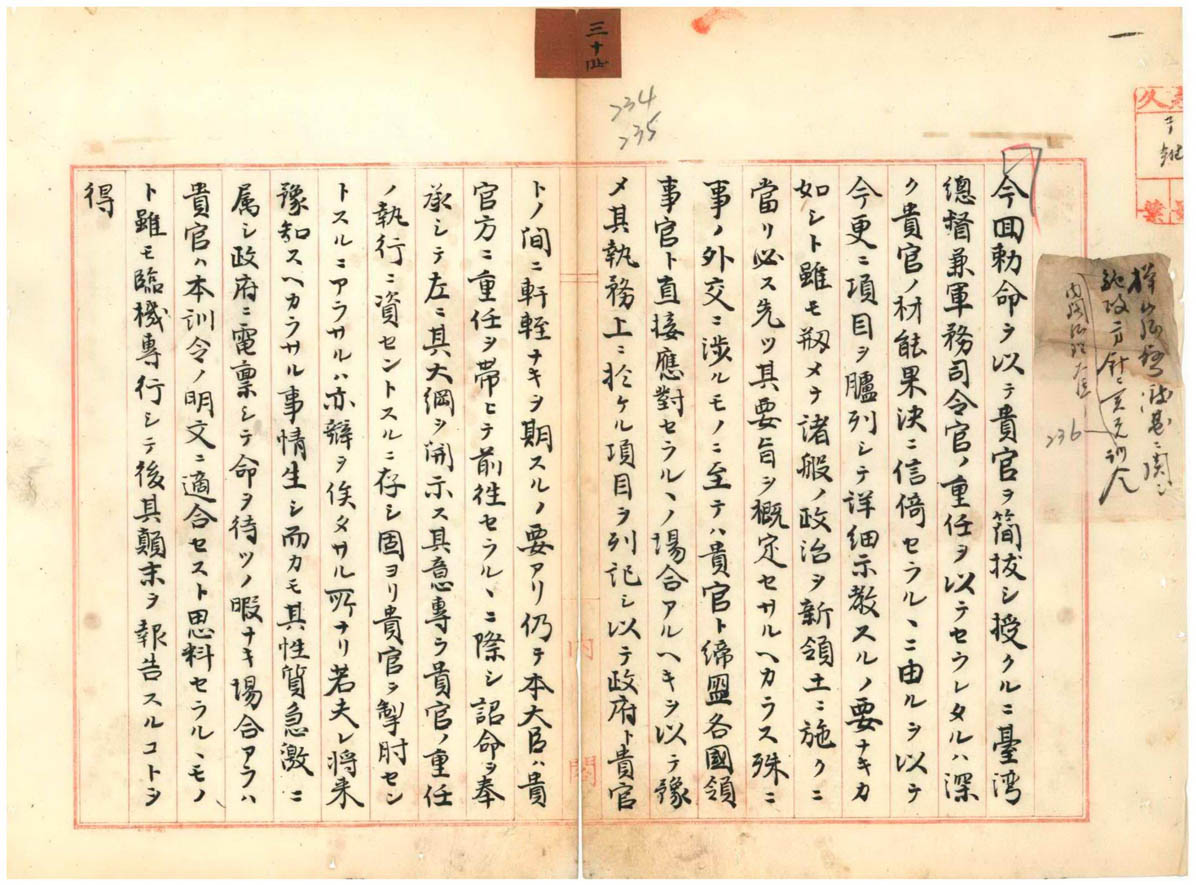 一
三十四
234
235
236
久
内閣総理大臣
今回勅命ヲ以テ貴官ヲ簡拔シ授クルニ臺湾
總督兼軍務司令官ノ重任ヲ以テセラレタルハ深
ク貴官ノ材能果决ニ信倚セラルヽニ由ルヲ以テ
今更ニ項目ヲ臚列シテ详細示教スルノ要ナキカ
如シト雖モ剏メテ諸般ノ政治ヲ新領土ニ施クニ
當リ必ス先ツ其要旨ヲ概定セサルヘカラス殊ニ
事ノ外交ニ渉ルモノニ至テハ貴官ト締盟各國領
事官ト直接應對セラルヽノ場合アルヘキヲ以テ豫
メ其執務上ニ於ケル項目ヲ列記シ以テ政府ト貴官
トノ間ニ軒輊ナキヲ期スルノ要アリ仍テ本大臣ハ貴
官方ニ重任ヲ帯ヒテ前往セラルヽニ際シ詔命ヲ奉
承シテ左ニ其大綱ヲ開示ス其意專ラ貴官ノ重任
ノ執行ニ資セントスルニ存シ固ヨリ貴官ヲ掣肘セン
トスルニアラサルハ亦辯ヲ俟タサル所ナリ若夫レ将来
豫知スヘカラサル事情生シ而カモ其性質急激ニ
属シ政府ニ電稟シテ命ヲ待ツノ暇ナキ場合アラハ
貴官ハ本訓令ノ明文ニ適合セスト思料セラルヽモノ
ト雖モ臨機專行シテ後其顛末ヲ報告スルコトヲ
得
内閣